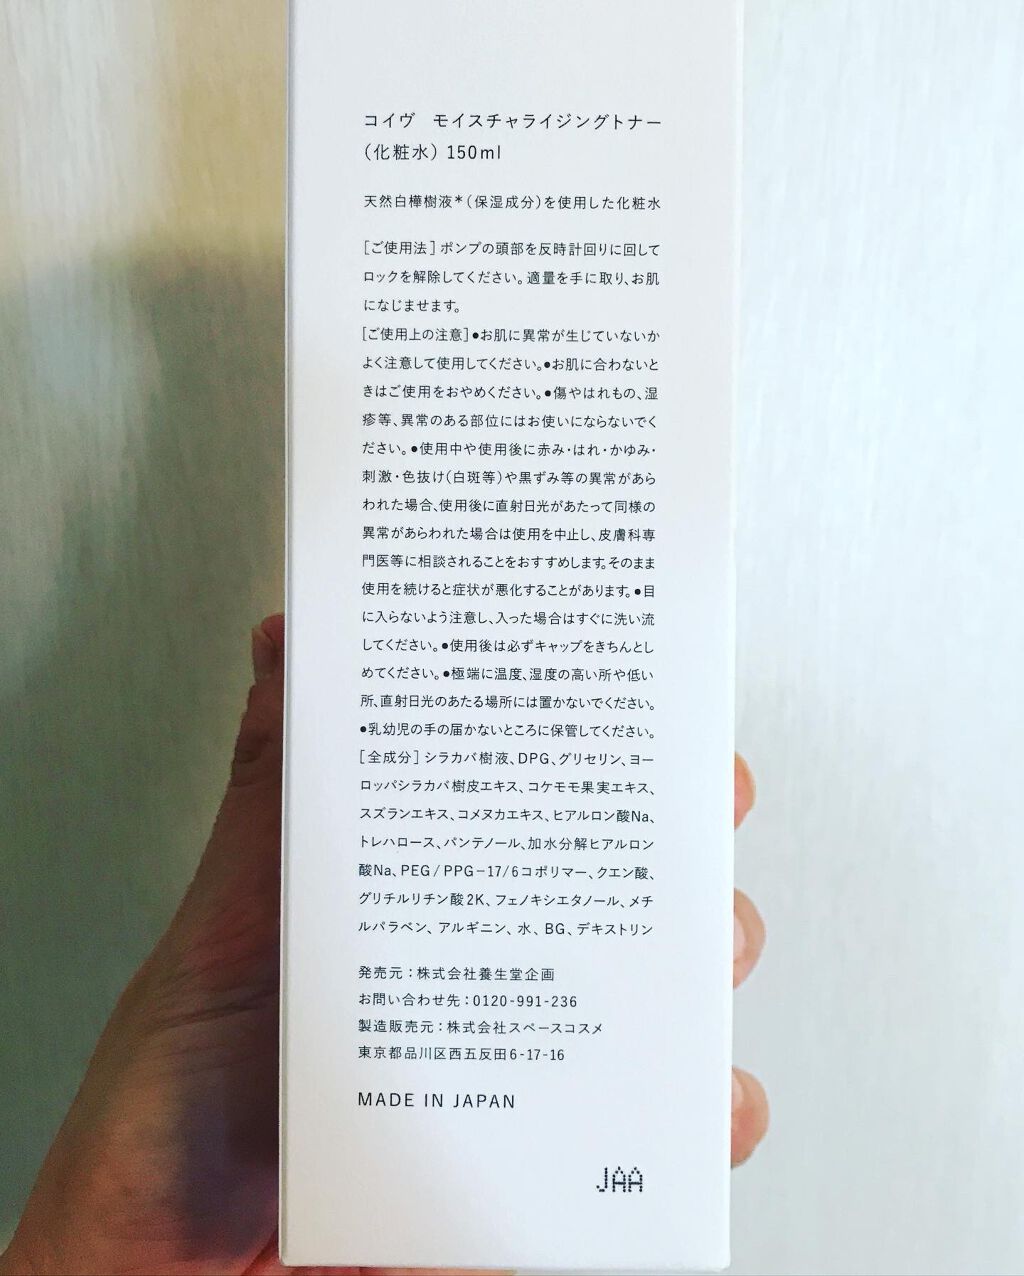 コイヴ　モイスチャライジングトナー
(化粧水) 150ml
天然白樺樹液*(保湿成分)を使用した化粧水
[ご使用法]ポンプの頭部を反時計回りに回して
ロックを解除してください。適量を手に取り、お肌
になじませます。
[ご使用上の注意]●お肌に異常が生じていないか
よく注意して使用してください。●お肌に合わないと
きはご使用をおやめください。●傷やはれもの、湿
疹等、異常のある部位にはお使いにならないでく
ださい。●使用中や使用後に赤み・はれ・かゆみ・
刺激・色抜け(白斑等)や黒ずみ等の異常があら
われた場合、使用後に直射日光があたって同様の
異常があらわれた場合は使用を中止し、皮膚科専
門医等に相談されることをおすすめします。そのまま
使用を続けると症状が悪化することがあります。●目
に入らないよう注意し、入った場合はすぐに洗い流
してください。●使用後は必ずキャップをきちんとし
めてください。●極端に温度、湿度の高い所や低い
所、直射日光のあたる場所には置かないでください。
●乳幼児の手の届かないところに保管してください。
[全成分]シラカバ樹液、DPG、グリセリン、ヨー
ロッパシラカバ樹皮エキス、コケモモ果実エキス、
スズランエキス、コメヌカエキス、ヒアルロン酸Na、
トレハロース、パンテノール、加水分解ヒアルロン
酸Na、PEG/PPG-17/6コポリマー、クエン酸、
グリチルリチン酸2K、フェノキシエタノール、メチ
ルパラベン、アルギニン、水、BG、デキストリン
発売元：株式会社養生堂企画
お問い合わせ先：0120-991-236
製造販売元：株式会社スペースコスメ
東京都品川区西五反田6-17-16
MADE IN JAPAN
JAA